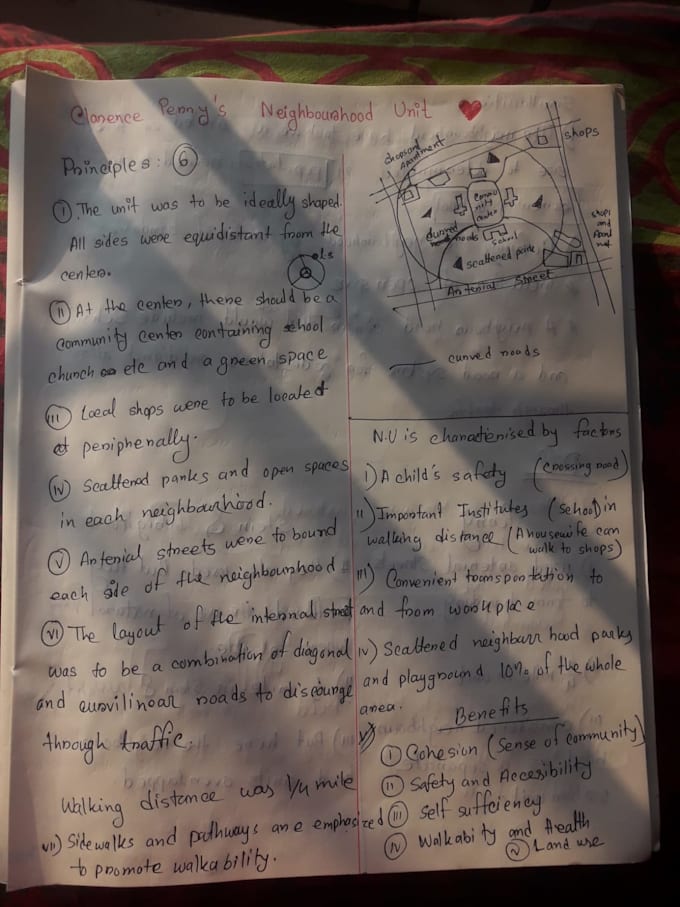 Clarence Perry's Neighbourhood Unit ❤
Principles: 6
i) The unit was to be ideally shaped.
All sides were equidistant from the
center.
ii) At the center, there should be a
community center containing school
church etc and a green space
iii) Local shops were to be located
at peripherally.
iv) Scattered parks and open spaces
in each neighbourhood.
v) Arterial streets were to bound
each side of the neighbourhood
vi) The layout of the internal street
was to be a combination of diagonal
and curvilinear roads to discourge
through traffic.
Walking distance was 1/4 mile
vii) Sidewalks and pathways are emphasized
to promote walkability.
shops
shops and
Apartment
Commu
nity
center
school
scattered park
shops
and
Arterial Street
curved roads
N.U is characterised by factors
i) A child's safety (crossing road)
ii) Important Institutes (school) in
walking distance (A housewife can
walk to shops)
iii) Convenient transportation to
and from workplace
iv) Scattered neighbour hood parks
and playground 10% of the whole
area.
Benefits
i) Cohesion (Sense of community)
ii) Safety and Accesibility
iii) Self sufficiency
iv) Walkability and Health
v) Land use